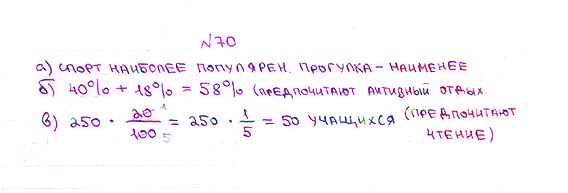 №70
а) СПОРТ НАИБОЛЕЕ ПОПУЛЯРЕН. ПРОГУЛКА – НАИМЕНЕЕ
б) 40% + 18% = 58% (ПРЕДПОЧИТАЮТ АКТИВНЫЙ ОТДЫХ
в) 250 · 20/100 = 250 · 1/5 = 50 УЧАЩИХСЯ (ПРЕДПОЧИТАЮТ
ЧТЕНИЕ)